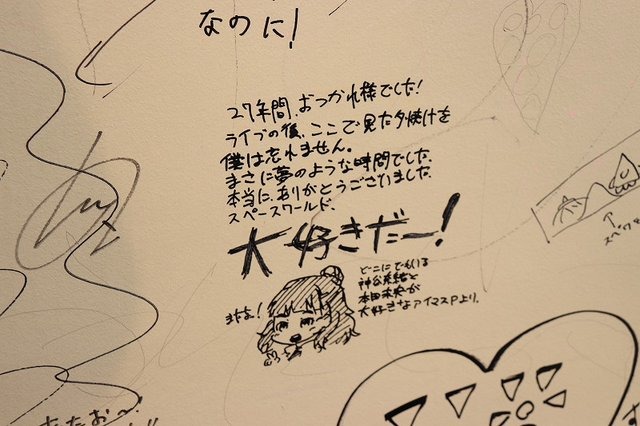 なのに!
27年間、おつかれ様でした!
ライブの後、ここで見た夕焼けを
僕は忘れません。
まさに夢のような時間でした。
本当に、ありがとうございました。
スペースワールド、
大好きだー!
またな!
どこにでもいる
神谷奈緒と
本田未央が
大好きなアイマスPより。
↑
スペワを